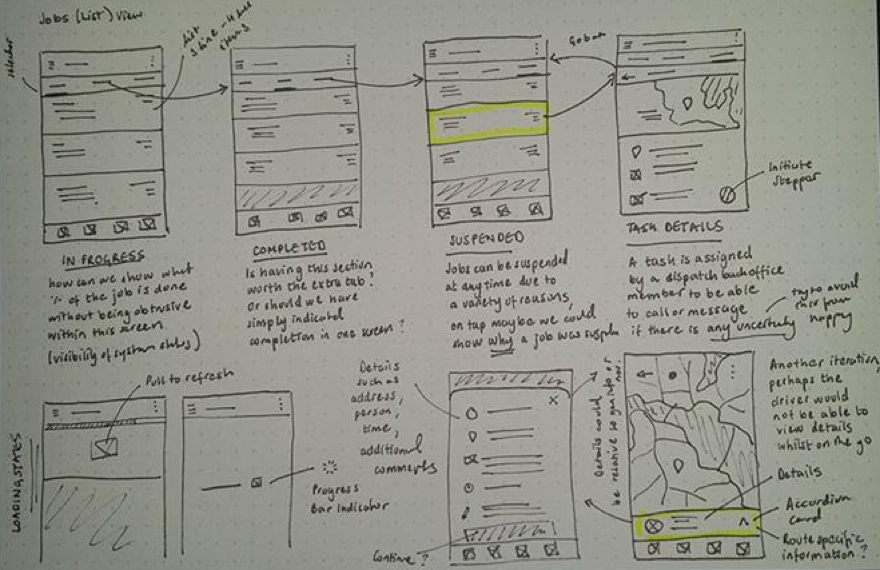 Jobs (List) View
selector
List
3 line - 4 line
items
Go back
Initiate
stepper
IN PROGRESS
how can we show what
% of the job is done
without being obtrusive
within this screen
(visibility of system status)
COMPLETED
Is having this section
worth the extra tab?
Or should we have
simply indicated
completion in one screen?
SUSPENDED
Jobs can be suspended
at any time due to
a variety of reasons,
on tap maybe we could
show why a job was
TASK DETAILS
A task is assigned
by a dispatch backoffice
member to be able
to call or message
if there is any uncertainty
try to avoid
this from
happy
LOADING STATES
Pull to refresh
Progress
Bar indicator
Details
such as
address,
person,
time,
additional
comments
Continue?
X
Details could
be relative so gen info or
Another iteration,
perhaps the
driver would
not be able to
view details
whilst on the go
Details
Accordion
card
Route specific
information?